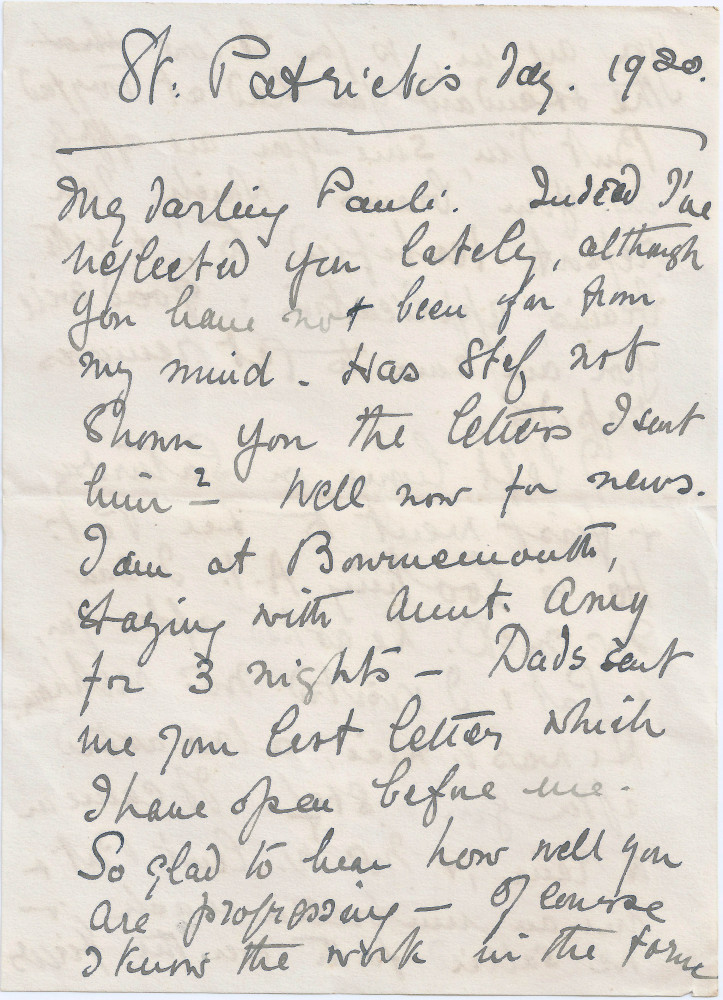 St. Patrick's Day. 1920.
My darling Pauli. Indeed I've
neglected you lately, although
you have not been far from
my mind. Has Stef not
shown you the letters I sent
him? - Well now for news.
I am at Bournemouth,
staying with Aunt. Amy
for 3 nights - Dads sent
me your last letter which
I have open before me.
So glad to hear how well you
are progressing - Of course
I know the work in the